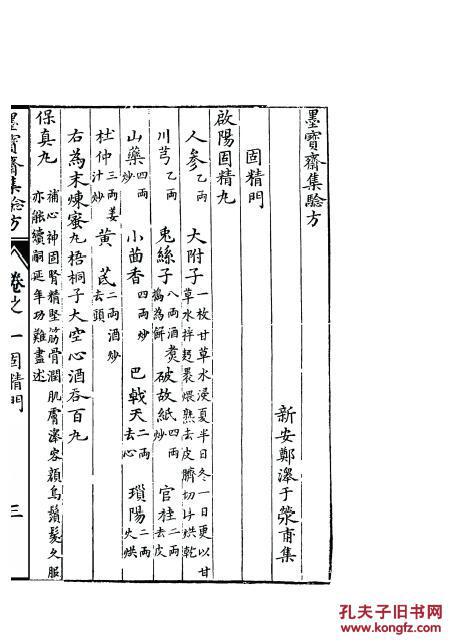 墨寶齋集驗方
新安鄭澤于滎甫集
固精門
啟陽固精丸
人參乙兩 大附子一枚甘草水浸夏半日冬一日更以甘草水拌麪裹煨熟去皮臍切片烘乾
川芎乙兩 兎絲子八兩酒煑搗為餅 破故紙四兩炒 官桂二兩去皮
山藥四兩炒 小茴香四兩炒 巴戟天二兩去心 瑣陽二兩火烘
杜仲三兩姜汁炒 黃茋二兩酒炒去頭
右為末煉蜜丸梧桐子大空心酒吞百丸
保真丸 補心神固腎精堅筋骨潤肌膚澤容顏烏鬚髮久服亦能續嗣延年功難盡述
墨寶齋集驗方 卷之一固精門 三
孔夫子旧书网
www.kongfz.com